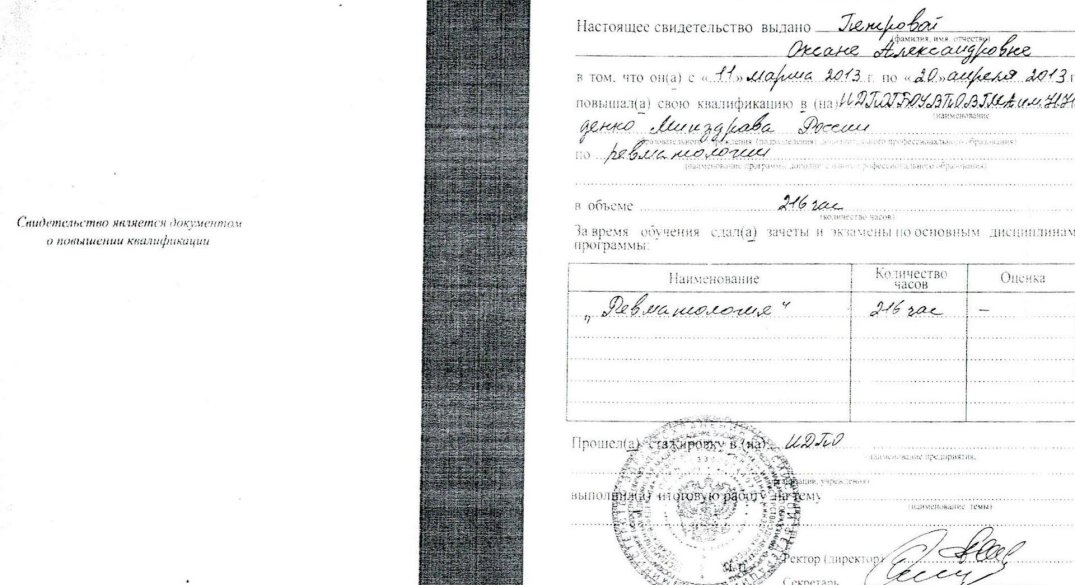 Свидетельство является документом
о повышении квалификации
Настоящее свидетельство выдано Петровой
(фамилия, имя, отчество)
Оксане Александровне
в том, что он(а) с «11» марта 2013 г. по «20» апреля 2013 г
повышал(а) свою квалификацию в (на) ИДПО ГБОУ ВПО ВГМА им. Н.Н
(наименование
денко Минздрава России
образовательного учреждения (подразделения) дополнительного профессионального образования)
по ревматологии
(наименование программы дополнительного профессионального образования)
в объеме 216 час
(количество часов)
За время обучения сдал(а) зачеты и экзамены по основным дисциплинам
программы:
Наименование Количество часов Оценка
„Ревматология“ 216 час –
Прошел(а) стажировку в (на) ИДПО
(наименование предприятия,
организации, учреждения)
выполнил(а) итоговую работу на тему
(наименование темы)
М.П.
Ректор (директор)
Секретарь